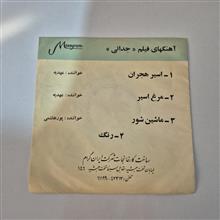 Monogram
آهنگهای فیلم « جدائی »
۱ – اسیر هجران خواننده : عهدیه
۲ – مرغ اسیر خواننده : عهدیه
۳ – ماشین شور خواننده : پورهاشمی
۴ – رنگ
ساخت کارخانجات شرکت ایران گرام